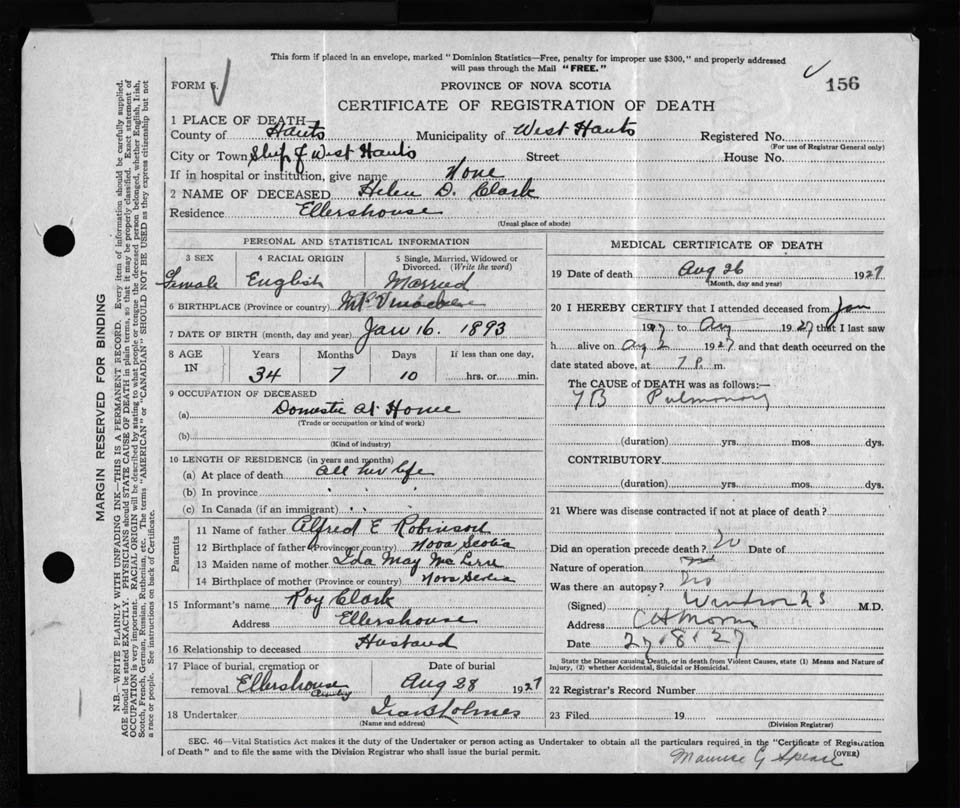 This form if placed in an envelope, marked "Dominion Statistics—Free, penalty for improper use $300," and properly addressed
will pass through the Mail "FREE."
156
FORM 6.
PROVINCE OF NOVA SCOTIA
CERTIFICATE OF REGISTRATION OF DEATH
1 PLACE OF DEATH—
County of Hants Municipality of West Hants Registered No.
(For use of Registrar General only)
City or Town Ship of West Hants Street House No.
If in hospital or institution, give name None
2 NAME OF DECEASED Helen D. Clark
Residence Ellershouse
(Usual place of abode)
PERSONAL AND STATISTICAL INFORMATION
3 SEX 4 RACIAL ORIGIN 5 Single, Married, Widowed or
Divorced. (Write the word)
Female English Married
6 BIRTHPLACE (Province or country)
7 DATE OF BIRTH (month, day and year) Jan 16. 1893
8 AGE IN Years Months Days If less than one day,
34 7 10 hrs. or min.
9 OCCUPATION OF DECEASED
(a) Domestic at Home
(Trade or occupation or kind of work)
(b)
(Kind of industry)
10 LENGTH OF RESIDENCE (in years and months)
(a) At place of death all her life
(b) In province
(c) In Canada (if an immigrant)
Parents
11 Name of father Alfred E Robinson
12 Birthplace of father (Province or country) Nova Scotia
13 Maiden name of mother Ida May
14 Birthplace of mother (Province or country) Nova Scotia
15 Informant's name Roy Clark
Address Ellershouse
16 Relationship to deceased Husband
17 Place of burial, cremation or Date of burial
removal Ellershouse Aug 28 1927
18 Undertaker Holmes
(Name and address)
MEDICAL CERTIFICATE OF DEATH
19 Date of death Aug 26 1927
(Month, day and year)
20 I HEREBY CERTIFY that I attended deceased from Jan
1927 to Aug 1927 that I last saw
h alive on Aug 2 1927 and that death occurred on the
date stated above, at 7 P. m.
The CAUSE OF DEATH was as follows:—
TB Pulmonary
(duration) yrs. mos. dys.
CONTRIBUTORY
(duration) yrs. mos. dys.
21 Where was disease contracted if not at place of death?
Did an operation precede death? No Date of
Nature of operation
Was there an autopsy? No
(Signed) Windsor NS M.D.
Address
Date 27.8.27
State the Disease causing Death, or in death from Violent Causes, state (1) Means and Nature of
Injury, (2) whether Accidental, Suicidal or Homicidal.
22 Registrar's Record Number
23 Filed 19
(Division Registrar)
SEC. 46—Vital Statistics Act makes it the duty of the Undertaker or person acting as Undertaker to obtain all the particulars required in the "Certificate of Registration
of Death" and to file the same with the Division Registrar who shall issue the burial permit.
(OVER)
MARGIN RESERVED FOR BINDING
N.B.—WRITE PLAINLY WITH UNFADING INK—THIS IS A PERMANENT RECORD. Every item of information should be carefully supplied.
AGE should be stated EXACTLY. PHYSICIANS should STATE CAUSE OF DEATH in plain terms, so that it may be properly classified. Exact statement of
OCCUPATION is very important. RACIAL ORIGIN will be described by stating to what people or tongue the deceased person belonged, whether English, Irish,
Scotch, French, German, Russian, Ruthenian, etc. The terms "AMERICAN" or "CANADIAN" SHOULD NOT BE USED as they express citizenship but not
a race or people. See instructions on back of Certificate.